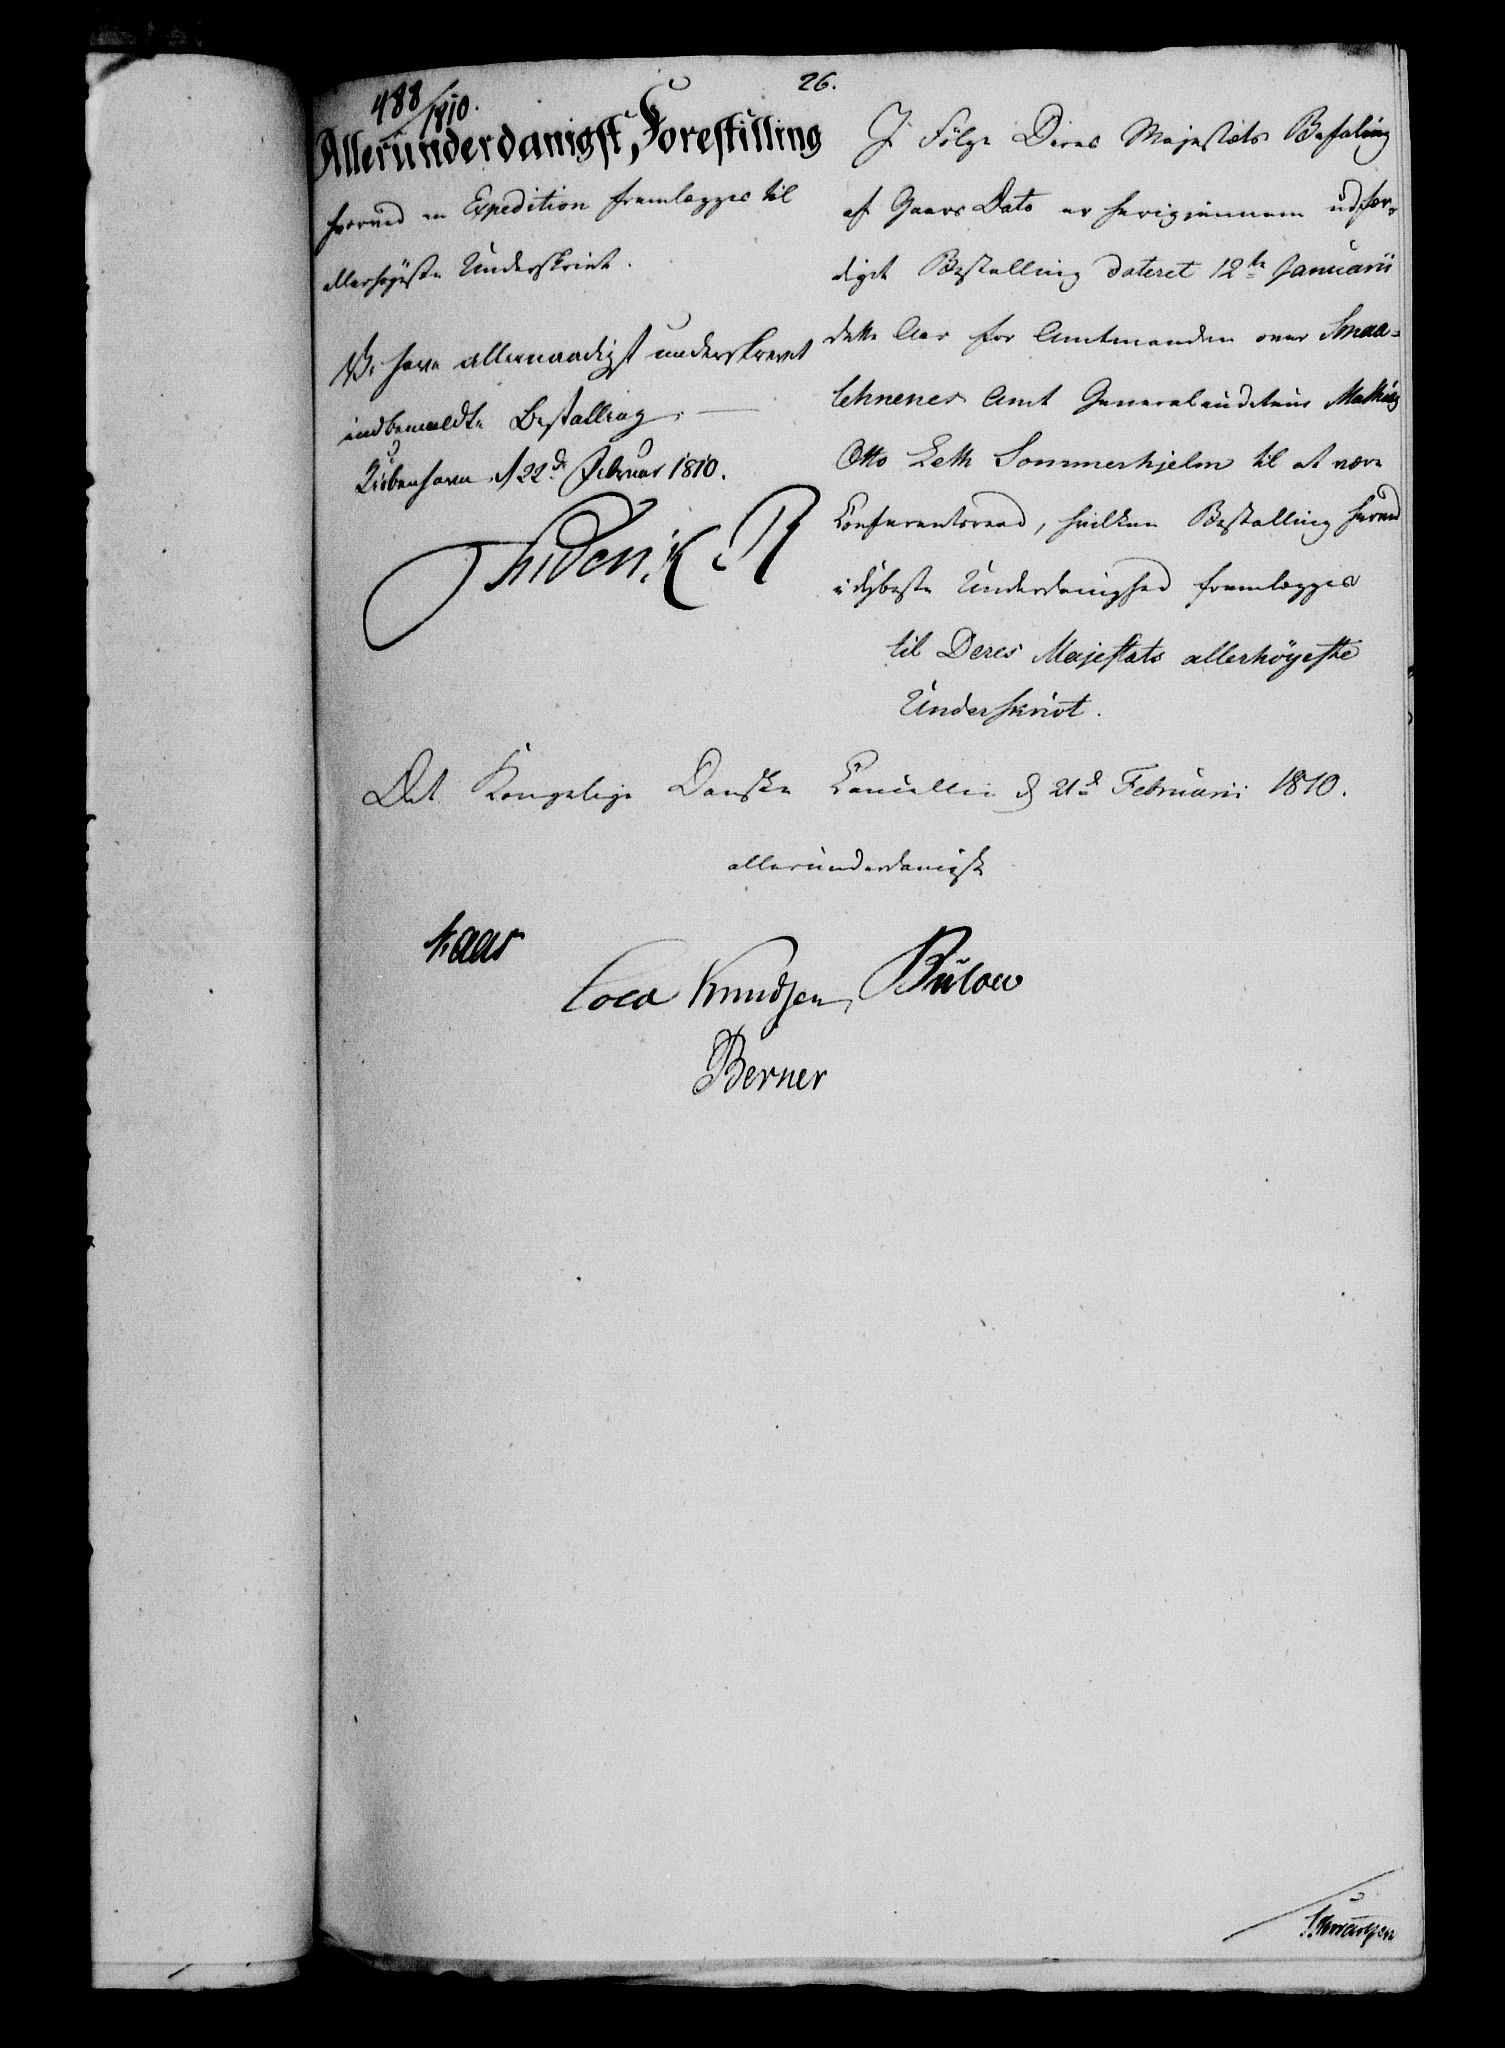 488/1810.
26.
Allerunderdanigst Forestilling
hvorved en Expedition fremlægges til
allerhøyeste Underskrivt.
Vi have allernaadigst underskrevet
indbemeldte Bestalling.
Kiøbenhavn d 22de Februar 1810.
Friderich R
I Følge Deres Majestæts Befaling
af Gaars Dato er herigjennem udfær-
diget Bestalling dateret 12te Januarii
dette Aar for Amtmanden over Smaa-
lehnenes Amt Generalauditeur Mathias
Otto Leth Sommerhjelm til at være
Conferentsraad, hvilken Bestalling herved
i dybeste Underdanighed fremlægges
til Deres Majestæts allerhöyeste
Underskrivt.
Det Kongelige Danske Cancellie d 21de Februarii 1810.
allerunderdanigst
Kaas
Cold Knudsen Bülow
Berner